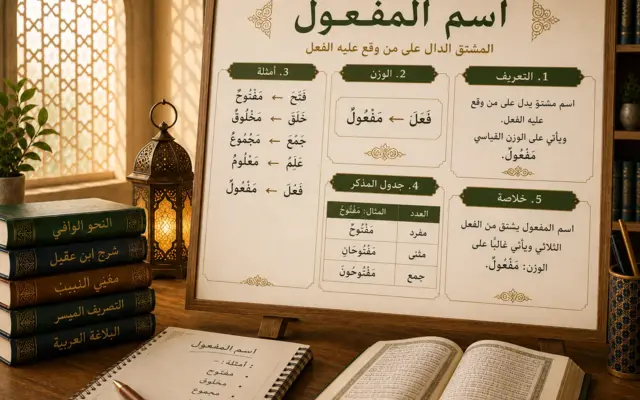 اسم المفعول
المشتق الدال على من وقع عليه الفعل
1. التعريف
اسم مشتق يدل على من وقع
عليه الفعل.
ويأتي على الوزن القياسي
مَفْعُولٌ.
2. الوزن
فَعَلَ ← مَفْعُولٌ
3. أمثلة
فَتَحَ ← مَفْتُوحٌ
خَلَقَ ← مَخْلُوقٌ
جَمَعَ ← مَجْمُوعٌ
عَلِمَ ← مَعْلُومٌ
فَعَلَ ← مَفْعُولٌ
4. جدول المذكر
العدد المثال: مَفْتُوحٌ
مفرد مَفْتُوحٌ
مثنى مَفْتُوحَانِ
جمع مَفْتُوحُونَ
5. خلاصة
اسم المفعول يشتق من الفعل
الثلاثي ويأتي غالبًا على
الوزن: مَفْعُولٌ.
النحو الوافي
شرح ابن عقيل
مغني اللبيب
التصريف الميسر
البلاغة العربية
اسم المفعول
أمثلة:
مفتوح
مخلوق
مجموع